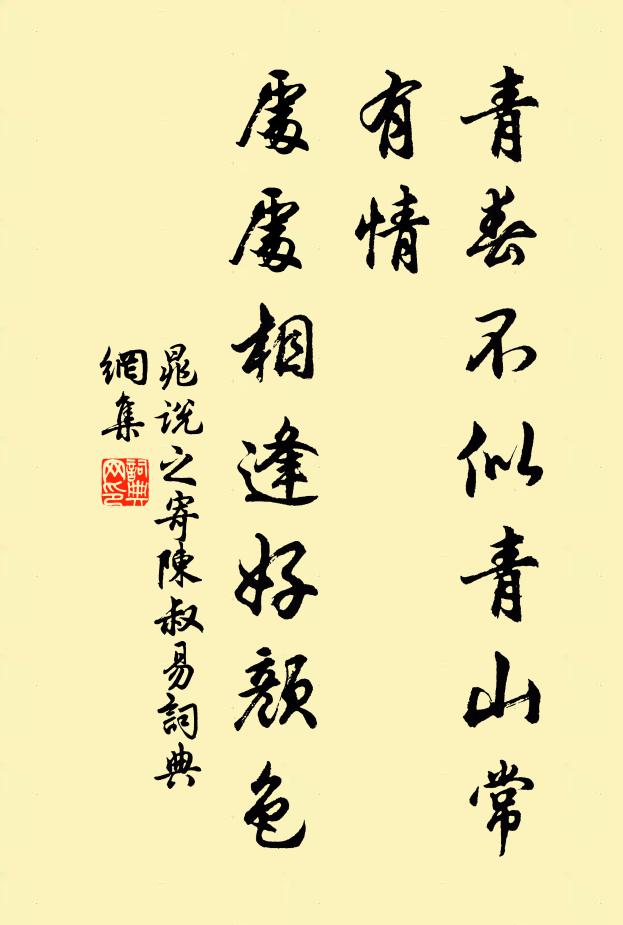 青春不似青山常
有情
處處相逢好顏色
晁說之寄陳叔易詞典
網集
詞典
网印